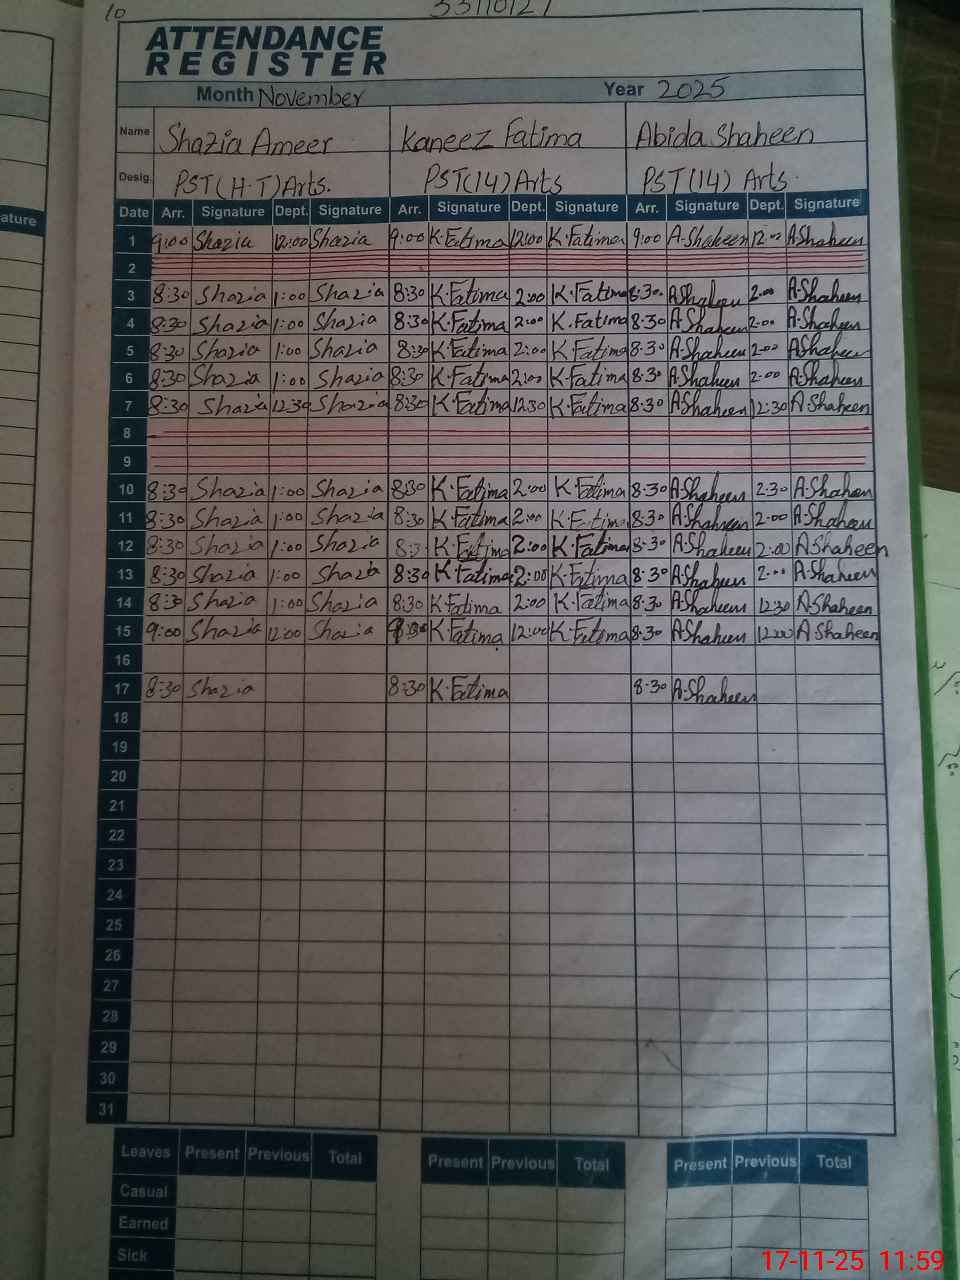 10
33110127
ATTENDANCE
REGISTER
Month November Year 2025
Name Shazia Ameer Kaneez Fatima Abida Shaheen
Desig. PST(H.T)Arts. PST(14)Arts PST(14) Arts.
ature
Date Arr. Signature Dept. Signature Arr. Signature Dept. Signature Arr. Signature Dept. Signature
1 9:00 Shazia 12:00 Shazia 9:00 K.Fatima 12:00 K.Fatima 9:00 A.Shaheen 12:00 A.Shaheen
2
3 8:30 Shazia 1:00 Shazia 8:30 K.Fatima 2:00 K.Fatima 8:30 A.Shaheen 2:00 A.Shaheen
4 8:30 Shazia 1:00 Shazia 8:30 K.Fatima 2:00 K.Fatima 8:30 A.Shaheen 2:00 A.Shaheen
5 8:30 Shazia 1:00 Shazia 8:30 K.Fatima 2:00 K.Fatima 8:30 A.Shaheen 2:00 A.Shaheen
6 8:30 Shazia 1:00 Shazia 8:30 K.Fatima 2:00 K.Fatima 8:30 A.Shaheen 2:00 A.Shaheen
7 8:30 Shazia 12:30 Shazia 8:30 K.Fatima 12:30 K.Fatima 8:30 A.Shaheen 12:30 A.Shaheen
8
9
10 8:30 Shazia 1:00 Shazia 8:30 K.Fatima 2:00 K.Fatima 8:30 A.Shaheen 2:30 A.Shaheen
11 8:30 Shazia 1:00 Shazia 8:30 K.Fatima 2:00 K.Fatima 8:30 A.Shaheen 2:00 A.Shaheen
12 8:30 Shazia 1:00 Shazia 8:3 K.Fatima 2:00 K.Fatima 8:30 A.Shaheen 2:00 A.Shaheen
13 8:30 Shazia 1:00 Shazia 8:30 K.Fatima 2:00 K.Fatima 8:30 A.Shaheen 2:00 A.Shaheen
14 8:30 Shazia 1:00 Shazia 8:30 K.Fatima 2:00 K.Fatima 8:30 A.Shaheen 12:30 A.Shaheen
15 9:00 Shazia 12:00 Shazia K.Fatima 12:00 K.Fatima 8:30 A.Shaheen 12:00 A.Shaheen
16
17 8:30 Shazia 8:30 K.Fatima 8:30 A.Shaheen
18
19
20
21
22
23
24
25
26
27
28
29
30
31
Leaves Present Previous Total Present Previous Total Present Previous Total
Casual
Earned
Sick
17-11-25 11:59